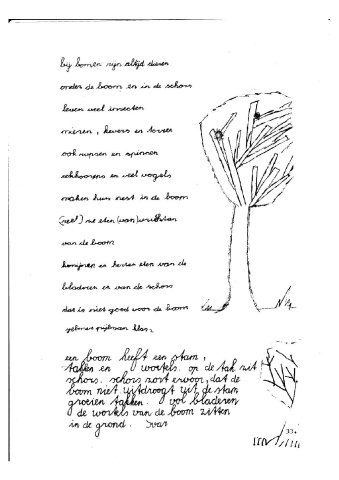 bij bomen zijn altijd dieren
onder de boom en in de schors
leven veel insecten
mieren, kevers en torren
ook rupsen en spinnen
eekhoorns en veel vogels
maken hun nest in de boom
ze eten (van)
van de boom
konijnen en herten eten van de
bladeren en van de schors
dat is niet goed voor de boom
een boom heeft een stam,
takken en wortels. op de tak zit
schors. schors zorgt ervoor, dat de
boom niet uitdroogt uit de stam
groeien takken. vol bladeren
de wortels van de boom zitten
in de grond.